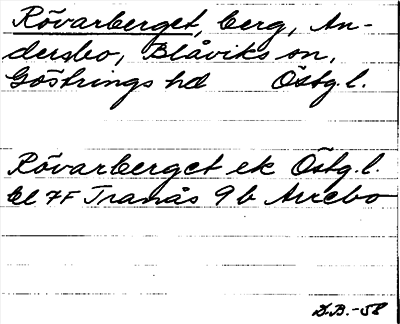 Rövarberget, berg, An-
dersbo, Blåviks sn,
Göstrings hd Östg. l.
Rövarberget ek Östg. l.
bl 7F Tranås 9 b Arrebo
D.B.-58